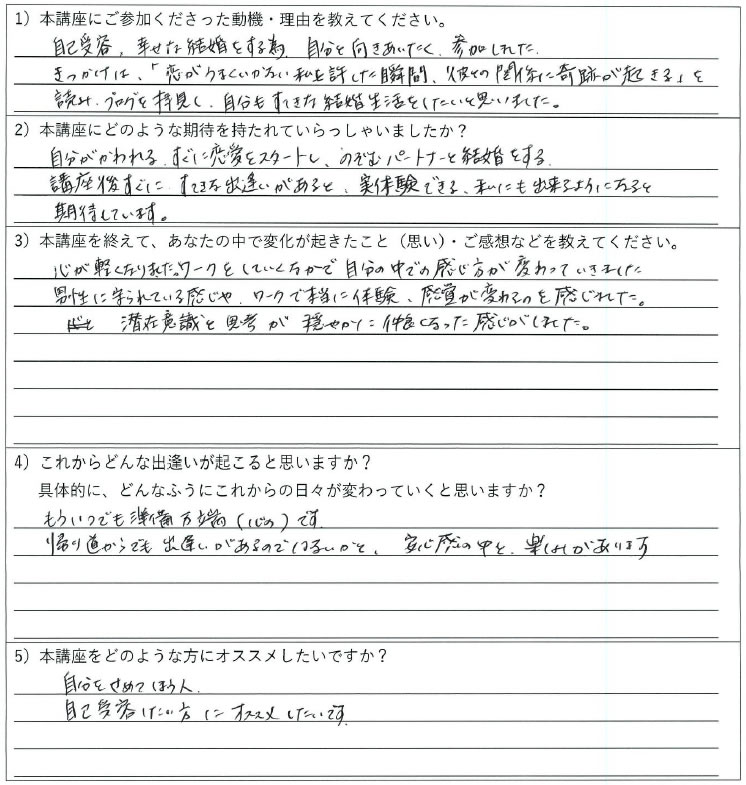 1）本講座にご参加くださった動機・理由を教えてください。
自己受容，幸せな結婚をする為，自分と向きあいたく，参加しました．
きっかけは、「恋がうまくいかない私を許した瞬間、彼との関係に奇跡が起きる」を
読み、ブログを拝見し、自分もすてきな結婚生活をしたいと思いました。
2）本講座にどのような期待を持たれていらっしゃいましたか？
自分がかわれる．すぐに恋愛をスタートし、のぞむパートナーと結婚をする．
講座後すぐに、すてきな出逢いがあると、実体験できる、私にも出来るようになると
期待しています。
3）本講座を終えて、あなたの中で変化が起きたこと（思い）・ご感想などを教えてください。
心が軽くなりました。ワークをしていくなかで自分の中での感じ方が変わっていきました
男性に守られている感じや、ワークで本当に体験、感覚が変わるのを感じました。
潜在意識と思考が穏やかに仲良くなった感じがしました。
4）これからどんな出逢いが起こると思いますか？
具体的に、どんなふうにこれからの日々が変わっていくと思いますか？
もういつでも準備万端（心の）です
帰り道からでも出逢いがあるのではないかと、安心感の中と、楽しみがあります
5）本講座をどのような方にオススメしたいですか？
自分をせめてしまう人．
自己受容したい方にオススメしたいです．